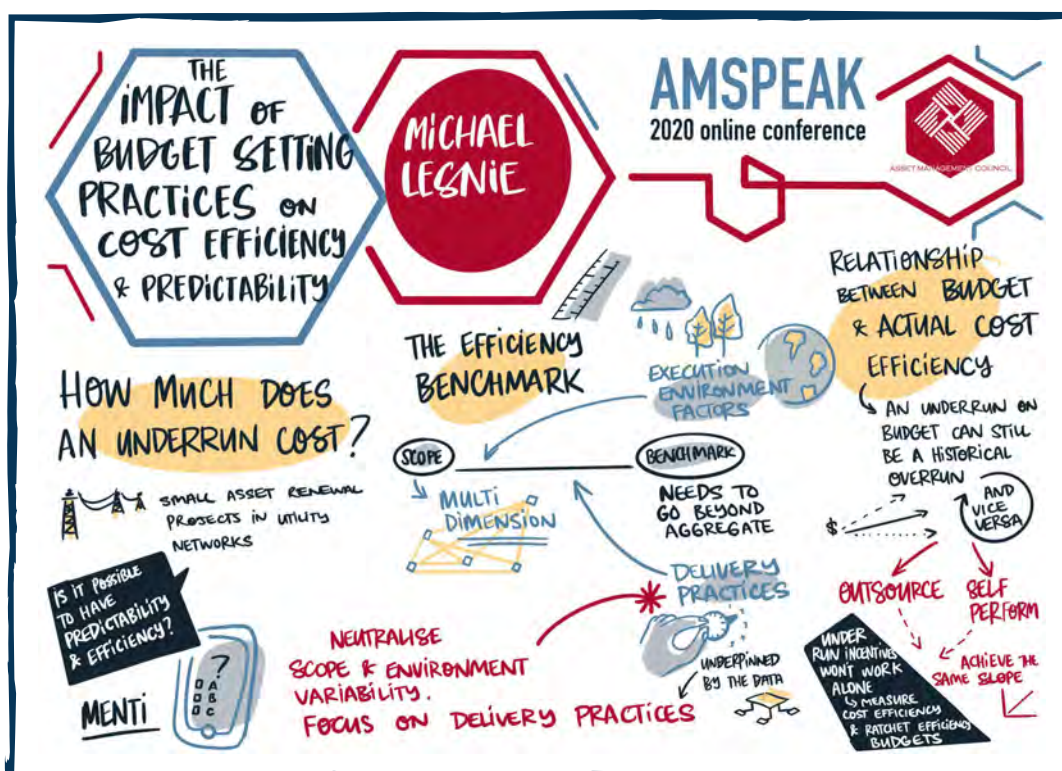 THE
IMPACT OF
BUDGET SETTING
PRACTICES ON
COST EFFICIENCY
& PREDICTABILITY
MICHAEL
LESNIE
AMSPEAK
2020 online conference
ASSET MANAGEMENT COUNCIL
HOW MUCH DOES
AN UNDERRUN COST?
SMALL ASSET RENEWAL
PROJECTS IN UTILITY
NETWORKS
IS IT POSSIBLE
TO HAVE
PREDICTABILITY
& EFFICIENCY?
MENTI
?
A
B
C
THE EFFICIENCY
BENCHMARK
EXECUTION
ENVIRONMENT
FACTORS
SCOPE
BENCHMARK
MULTI
DIMENSION
NEEDS TO
GO BEYOND
AGGREGATE
DELIVERY
PRACTICES
UNDERPINNED
BY THE DATA
NEUTRALISE
SCOPE & ENVIRONMENT
VARIABILITY.
FOCUS ON DELIVERY PRACTICES
RELATIONSHIP
BETWEEN BUDGET
& ACTUAL COST
EFFICIENCY
AN UNDERRUN ON
BUDGET CAN STILL
BE A HISTORICAL
OVERRUN
$
AND
VICE
VERSA
OUTSOURCE
SELF
PERFORM
ACHIEVE THE
SAME SLOPE
UNDER
RUN INCENTIVES
WON'T WORK
ALONE
MEASURE
COST EFFICIENCY
& RATCHET EFFICIENCY
BUDGETS